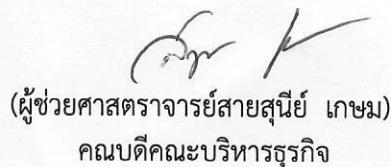 (ผู้ช่วยศาสตราจารย์สายสุนีย์ เกษม)
คณบดีคณะบริหารธุรกิจ